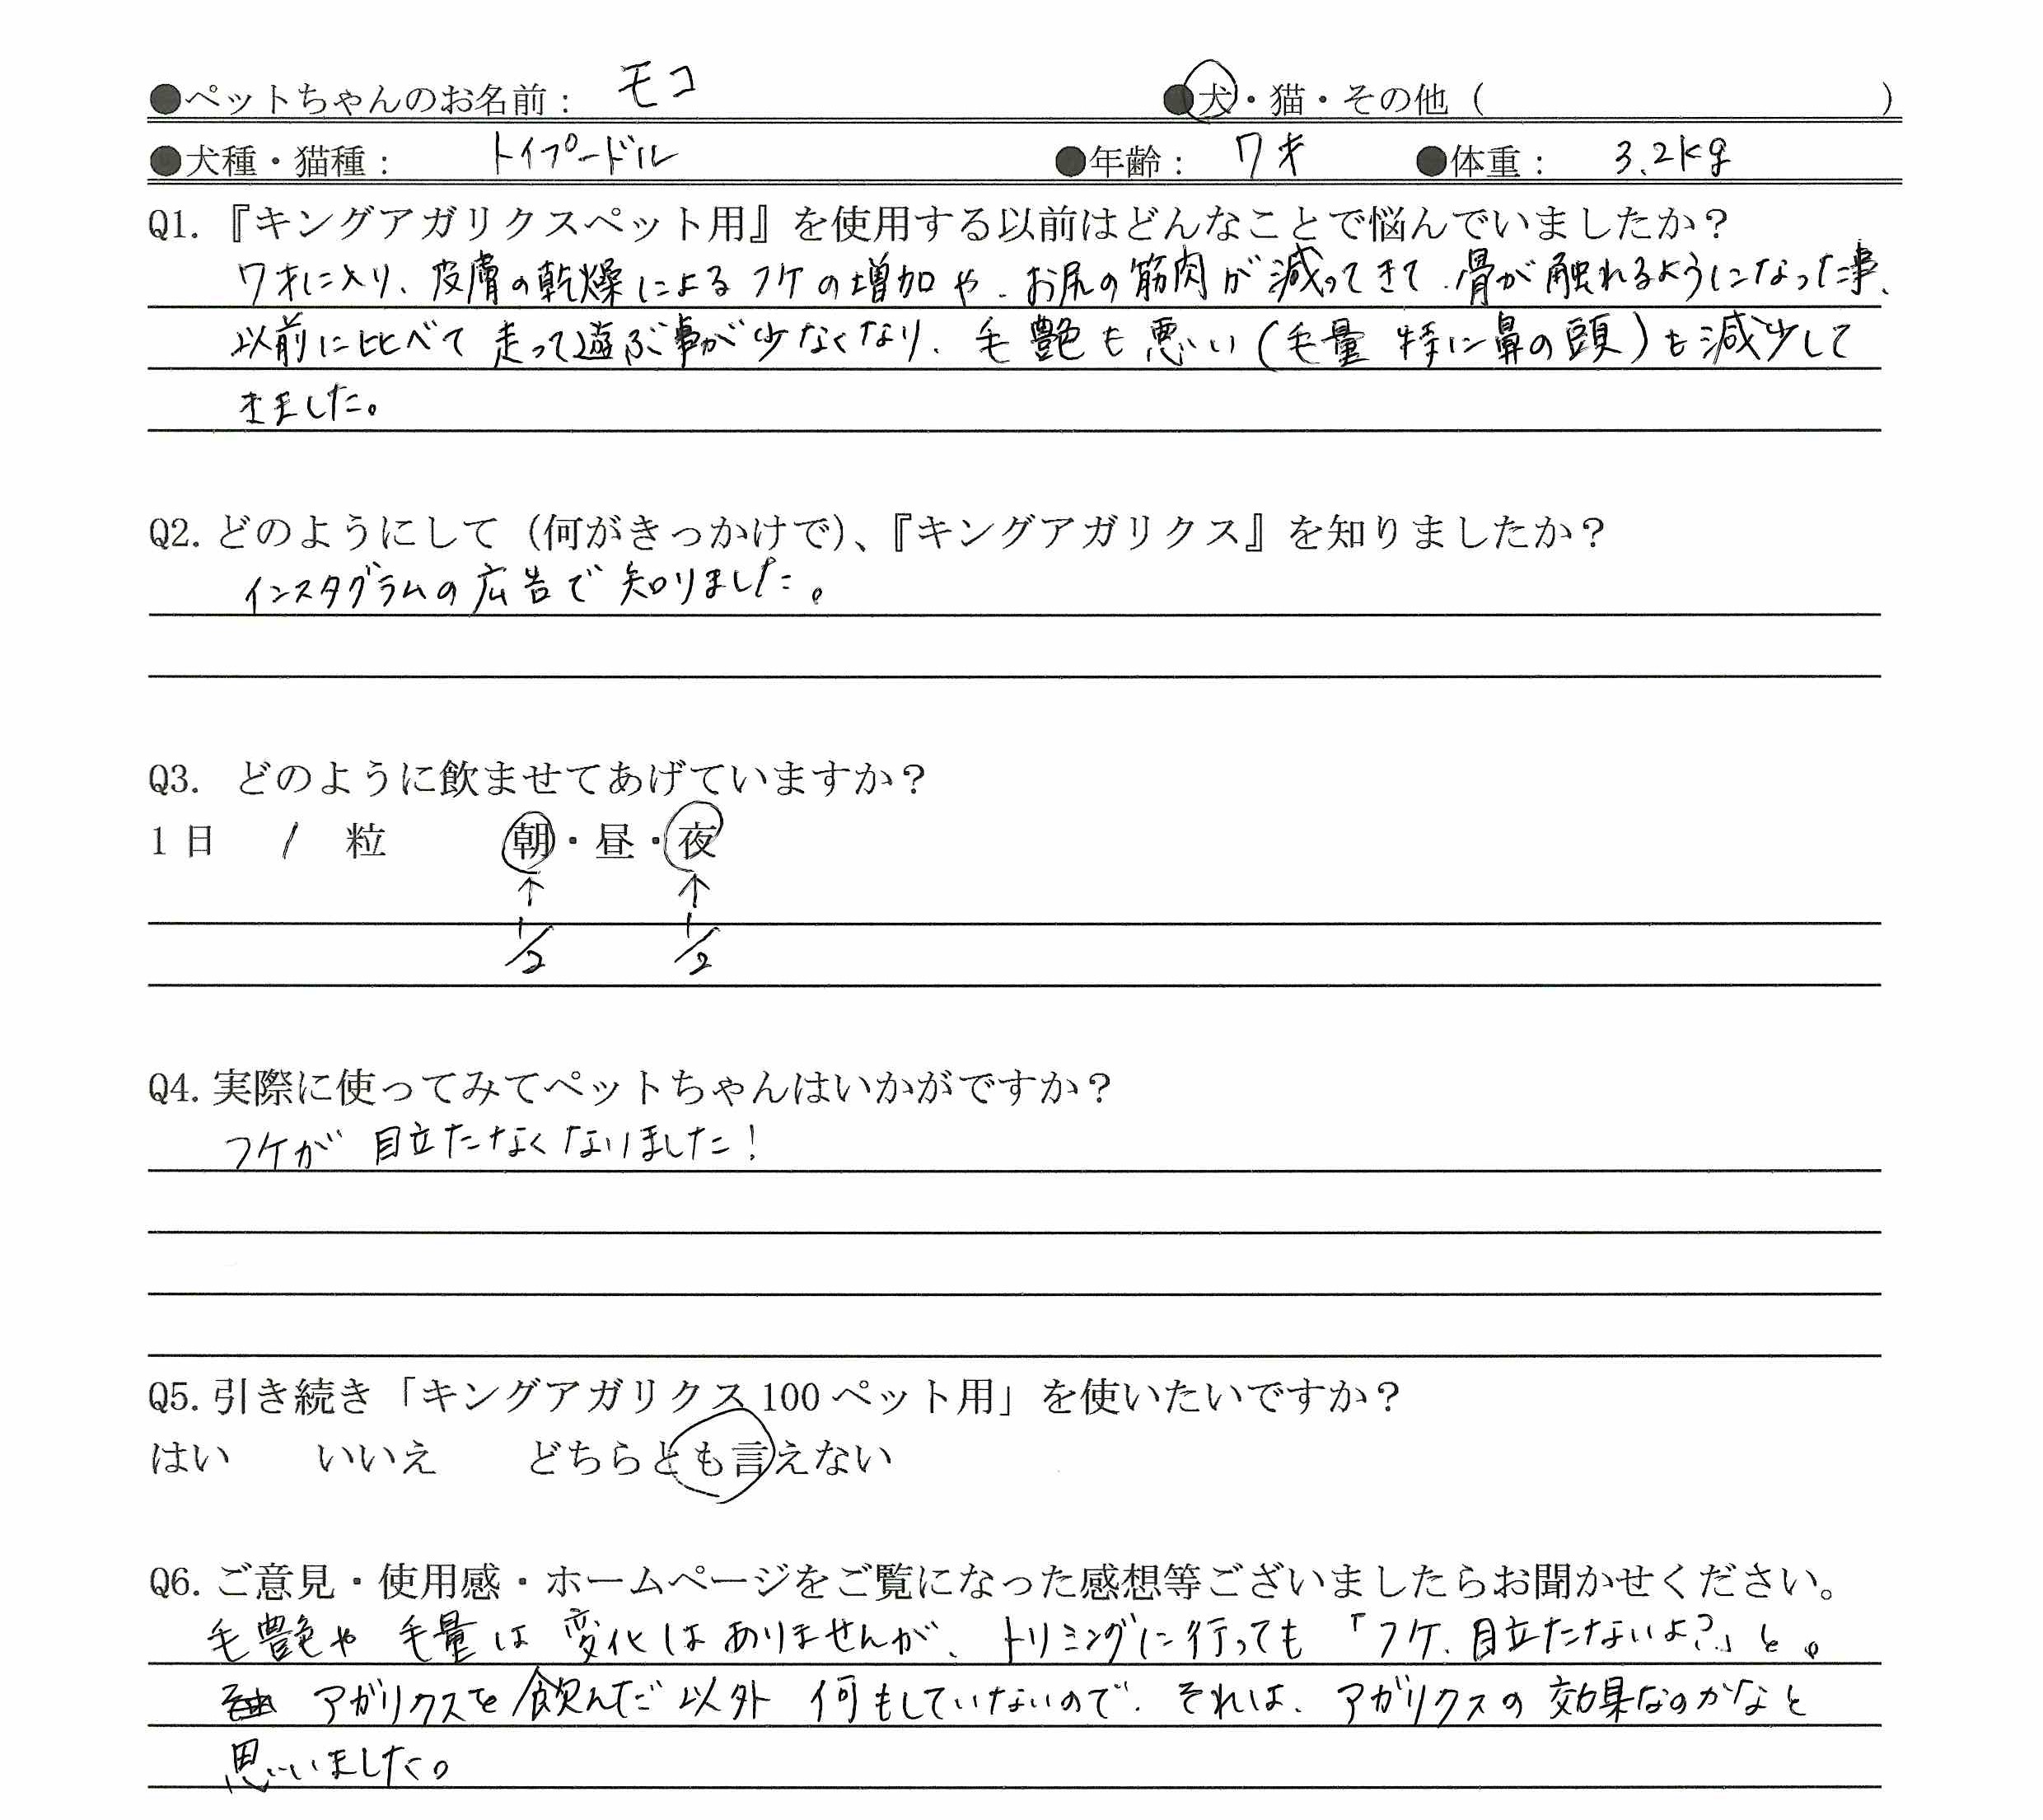 ●ペットちゃんのお名前： モコ ●犬・猫・その他（ ）
●犬種・猫種： トイプードル ●年齢： 7才 ●体重： 3.2kg
Q1.『キングアガリクスペット用』を使用する以前はどんなことで悩んでいましたか？
7才に入り、皮膚の乾燥によるフケの増加や、お尻の筋肉が減ってきて、骨が触れるようになった事、
以前に比べて走って遊ぶ事が少なくなり、毛艶も悪い（毛量 特に鼻の頭）も減少して
きました。
Q2.どのようにして（何がきっかけで）、『キングアガリクス』を知りましたか？
インスタグラムの広告で知りました。
Q3. どのように飲ませてあげていますか？
1日 1 粒 朝・昼・夜
↑ ↑
1/2 1/2
Q4.実際に使ってみてペットちゃんはいかがですか？
フケが目立たなくなりました！
Q5.引き続き「キングアガリクス100ペット用」を使いたいですか？
はい いいえ どちらとも言えない
Q6.ご意見・使用感・ホームページをご覧になった感想等ございましたらお聞かせください。
毛艶や毛量は変化はありませんが、トリミングに行っても「フケ、目立たないよ？」と。
アガリクスを飲んだ以外何もしていないので、それは、アガリクスの効果なのかなと
思いました。